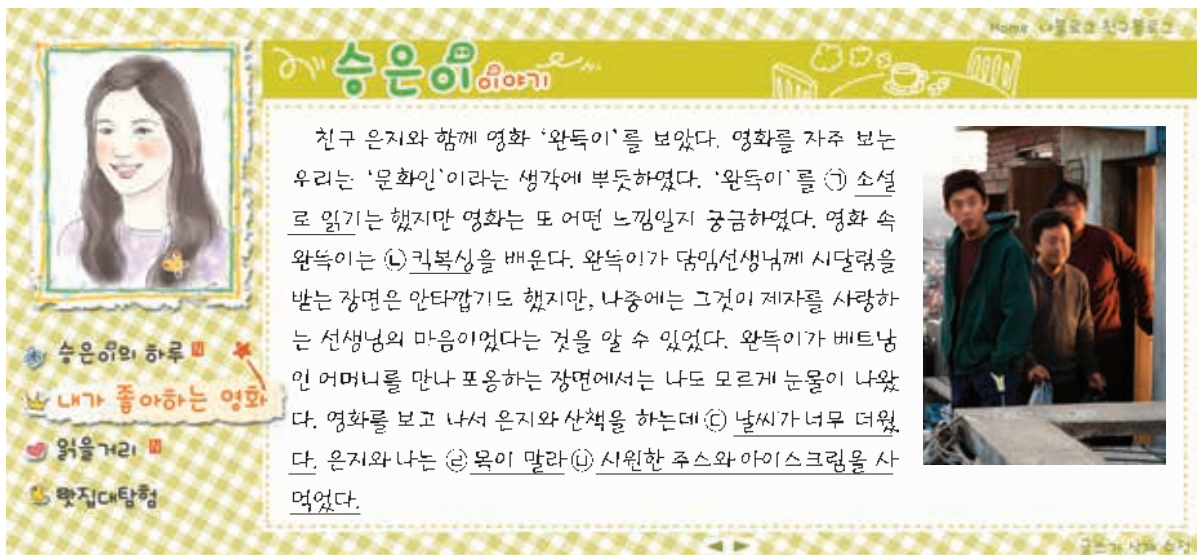 Home 나의블로그 친구블로그
승은이 이야기
친구 은지와 함께 영화 '완득이'를 보았다. 영화를 자주 보는
우리는 '문화인'이라는 생각에 뿌듯하였다. '완득이'를 ㉠ 소설
로 읽기는 했지만 영화는 또 어떤 느낌일지 궁금하였다. 영화 속
완득이는 ㉡ 킥복싱을 배운다. 완득이가 담임선생님께 시달림을
받는 장면은 안타깝기도 했지만, 나중에는 그것이 제자를 사랑하
는 선생님의 마음이었다는 것을 알 수 있었다. 완득이가 베트남
인 어머니를 만나 포옹하는 장면에서는 나도 모르게 눈물이 나왔
다. 영화를 보고 나서 은지와 산책을 하는데 ㉢ 날씨가 너무 더웠
다. 은지와 나는 ㉣ 목이 말라 ㉤ 시원한 주스와 아이스크림을 사
먹었다.
승은이의 하루 N
내가 좋아하는 영화
읽을거리 N
맛집대탐험